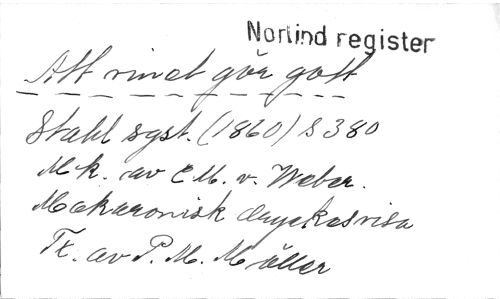 Norlind register
Att vinet gör gott
Stahl sgst. (1860) S 380
Mk. av C M. v. Weber.
Makaronisk dryckesvisa
Tx. av P. M. Möller